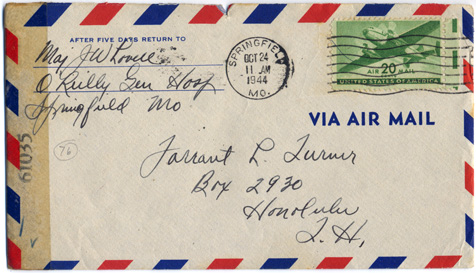 AFTER FIVE DAYS RETURN TO
Maj J W Lovie
O'Reilly Gen Hosp
Springfield Mo
SPRINGFIELD
OCT 24
11 AM
1944
MO.
AIR 20¢ MAIL
UNITED STATES OF AMERICA
VIA AIR MAIL
61035
76
Farrant L. Turner
Box 2930
Honolulu
T. H.